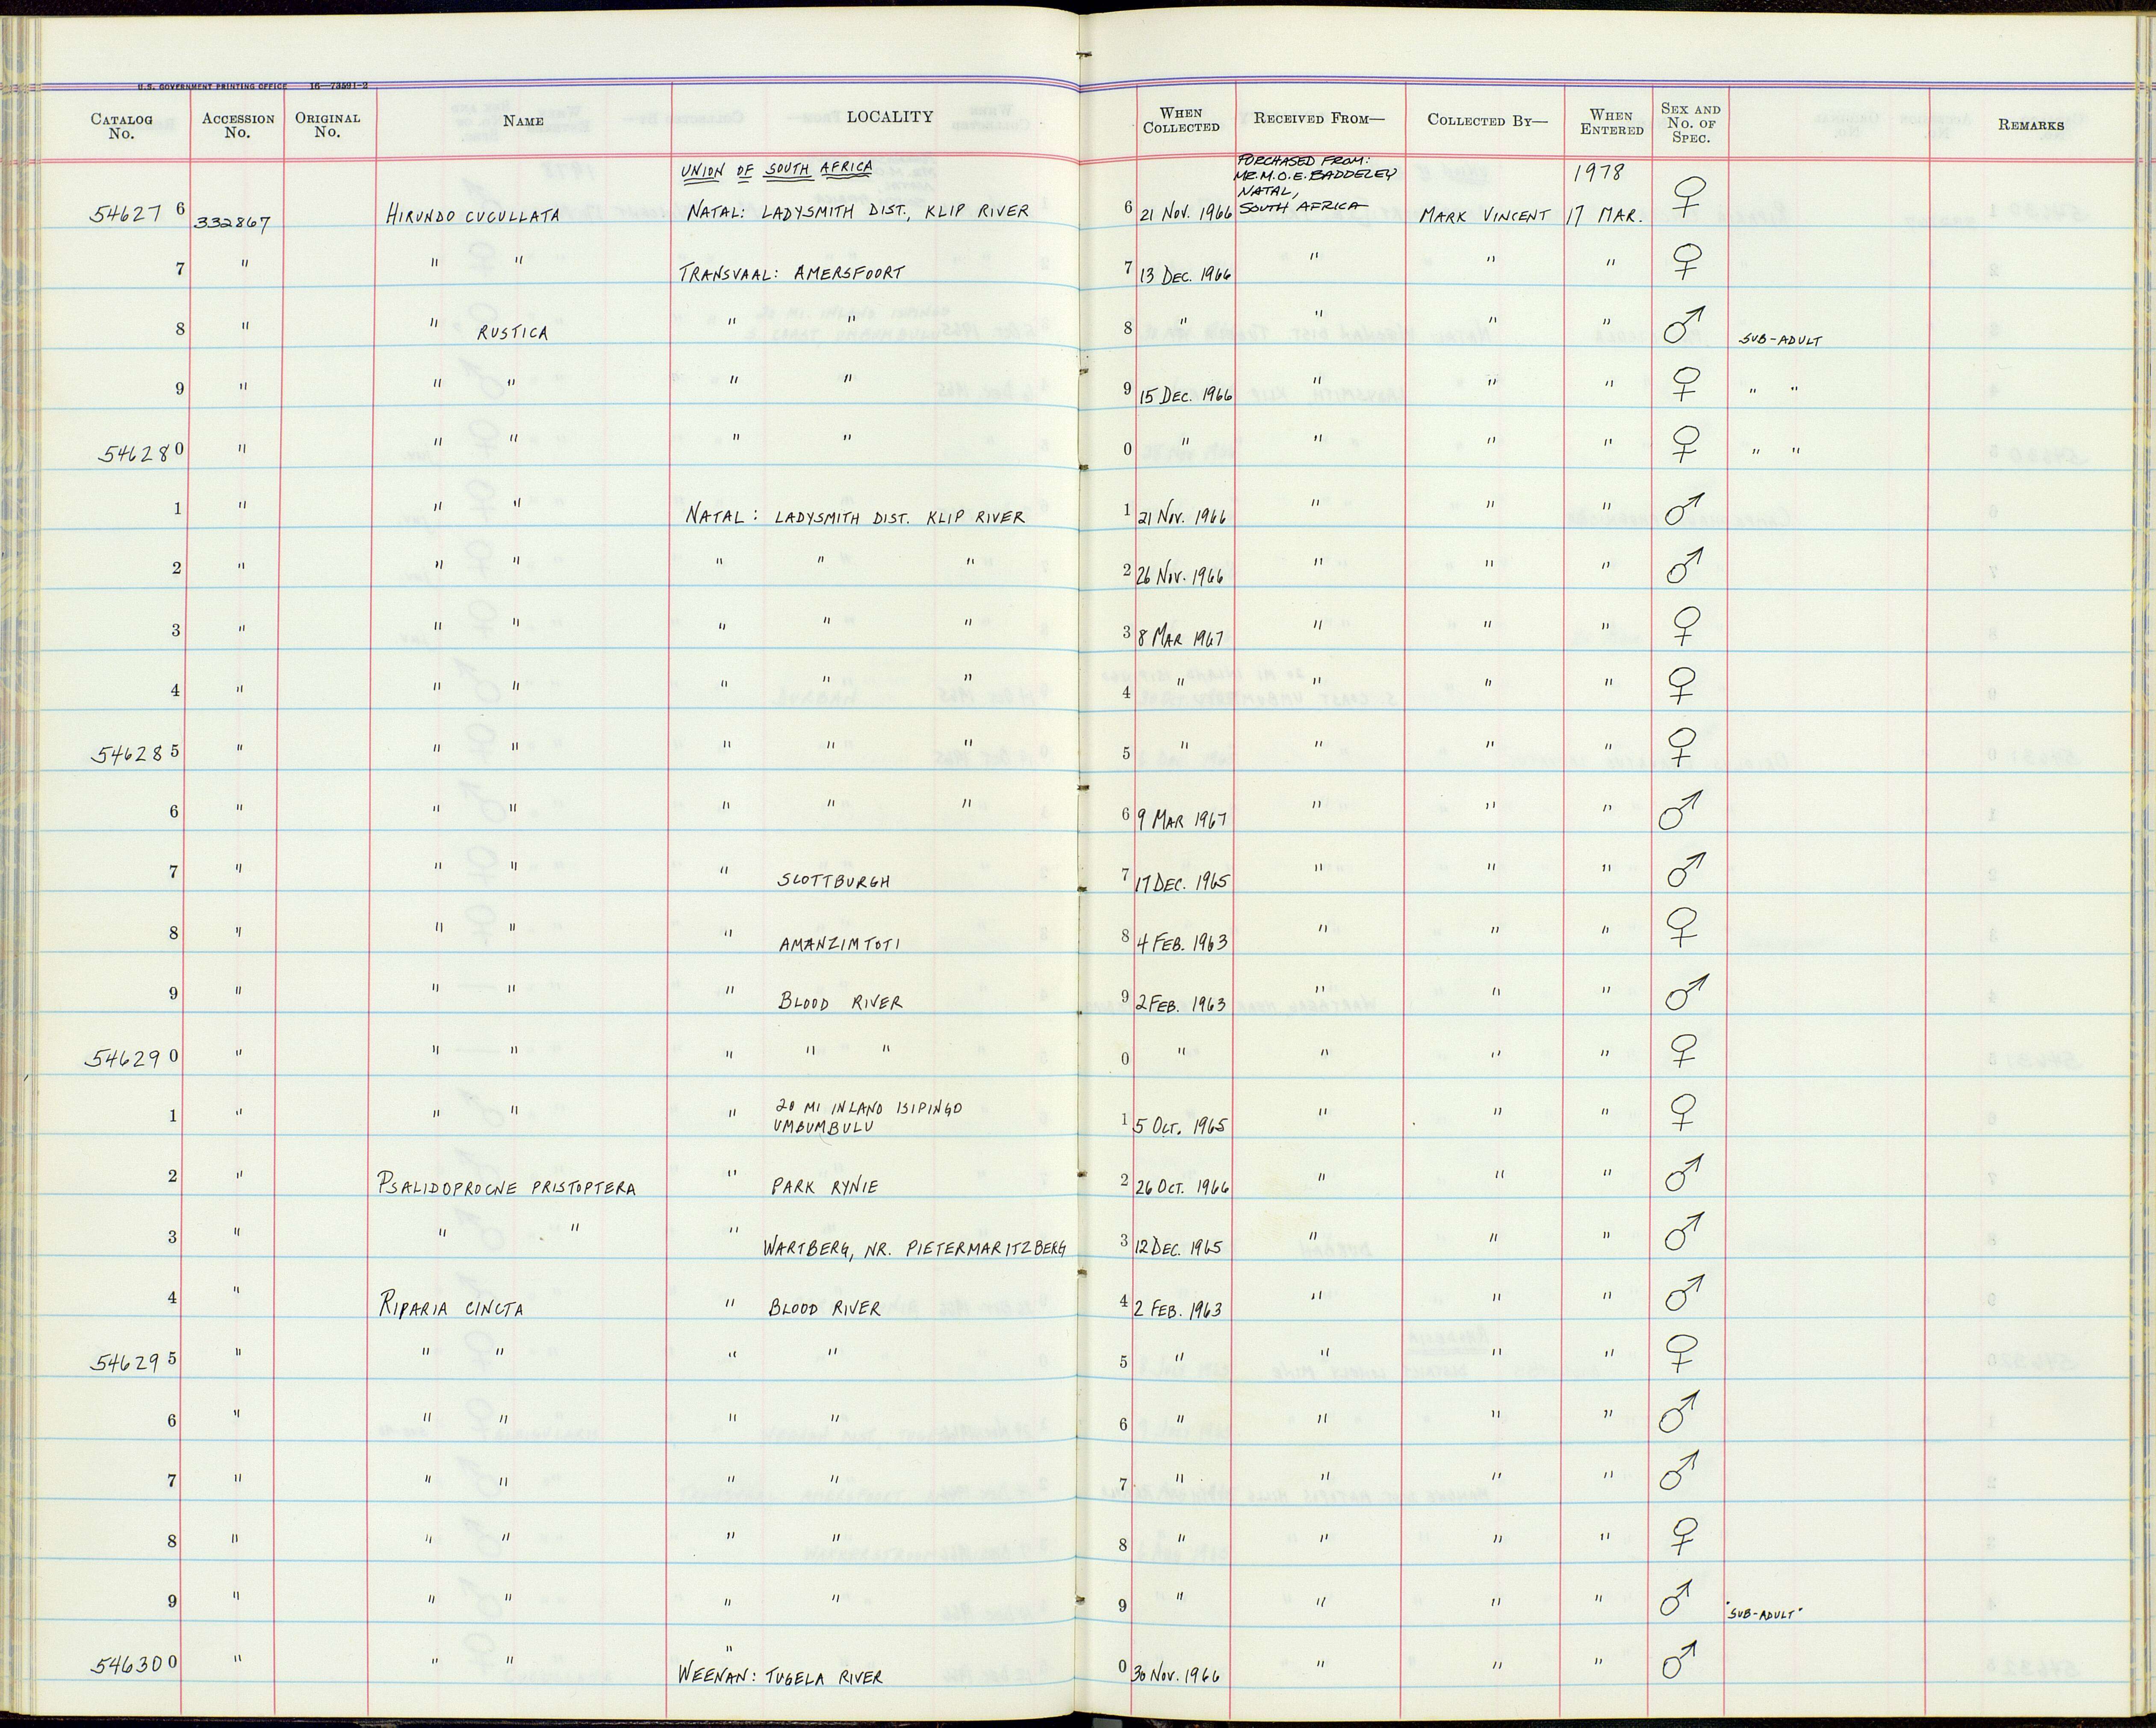 U.S. GOVERNMENT PRINTING OFFICE 16—73591-2
CATALOG No. ACCESSION No. ORIGINAL No. NAME LOCALITY WHEN COLLECTED RECEIVED FROM— COLLECTED BY— WHEN ENTERED SEX AND No. OF SPEC. REMARKS
UNION OF SOUTH AFRICA PURCHASED FROM: MR. M.O.E. BADDELEY NATAL, SOUTH AFRICA 1978
546276 332867 HIRUNDO CUCULLATA NATAL: LADYSMITH DIST., KLIP RIVER 6 21 NOV. 1966 MARK VINCENT 17 MAR. ♀
7 " " " TRANSVAAL: AMERSFOORT 7 13 DEC. 1966 " " " ♀
8 " " RUSTICA " " 8 " " " " ♂ SUB-ADULT
9 " " " " " 9 15 DEC. 1966 " " " ♀ " "
546280 " " " " " 0 " " " " ♀ " "
1 " " " NATAL: LADYSMITH DIST. KLIP RIVER 1 21 NOV. 1966 " " " ♂
2 " " " " " " 2 26 NOV. 1966 " " " ♂
3 " " " " " " 3 8 MAR 1967 " " " ♀
4 " " " " " " 4 " " " " ♀
546285 " " " " " " 5 " " " " ♀
6 " " " " " " 6 9 MAR 1967 " " " ♂
7 " " " " SCOTTBURGH 7 17 DEC. 1965 " " " ♂
8 " " " " AMANZIMTOTI 8 4 FEB. 1963 " " " ♀
9 " " " " BLOOD RIVER 9 2 FEB. 1963 " " " ♂
546290 " " " " " " 0 " " " " ♀
1 " " " " 20 MI INLAND ISIPINGO
UMBUMBULU 1 5 OCT. 1965 " " " ♀
2 " PSALIDOPROCNE PRISTOPTERA " PARK RYNIE 2 26 OCT. 1966 " " " ♂
3 " " " " WARTBERG, NR. PIETERMARITZBERG 3 12 DEC. 1965 " " " ♂
4 " RIPARIA CINCTA " BLOOD RIVER 4 2 FEB. 1963 " " " ♂
546295 " " " " " 5 " " " " ♀
6 " " " " " 6 " " " " ♂
7 " " " " " 7 " " " " ♂
8 " " " " " 8 " " " " ♀
9 " " " " " 9 " " " " ♂ "SUB-ADULT"
546300 " " " " WEENAN: TUGELA RIVER 0 30 NOV. 1966 " " " ♂